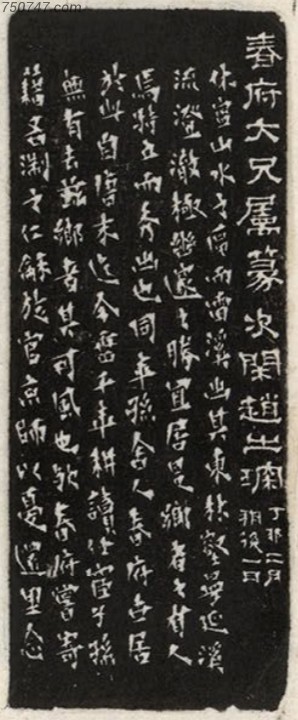 750747.com
春府大兄属篆次閑趙之琛
丁卯二月
朔後一日
休寧山水之區而雷溪出其東林壑曼延溪
流澄澈極幽邃之勝宜居是鄉者之材人
焉特立而秀出也同年孫舍人春府世居
於此自唐末迄今千年耕讀仕宦子孫
無有去茲鄉者其可風也歟春府嘗寄
籍吾浙之仁龢於官京師以憂還里念